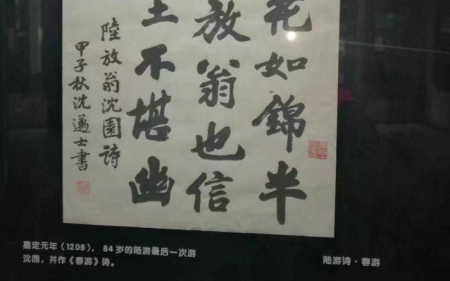 花如錦半
放翁也信
土不堪幽
陸放翁沈園詩
甲子秋沈邁士書
嘉定元年（1208），84 岁的陆游最后一次游
沈园，并作《春游》诗。
陆游诗·春游